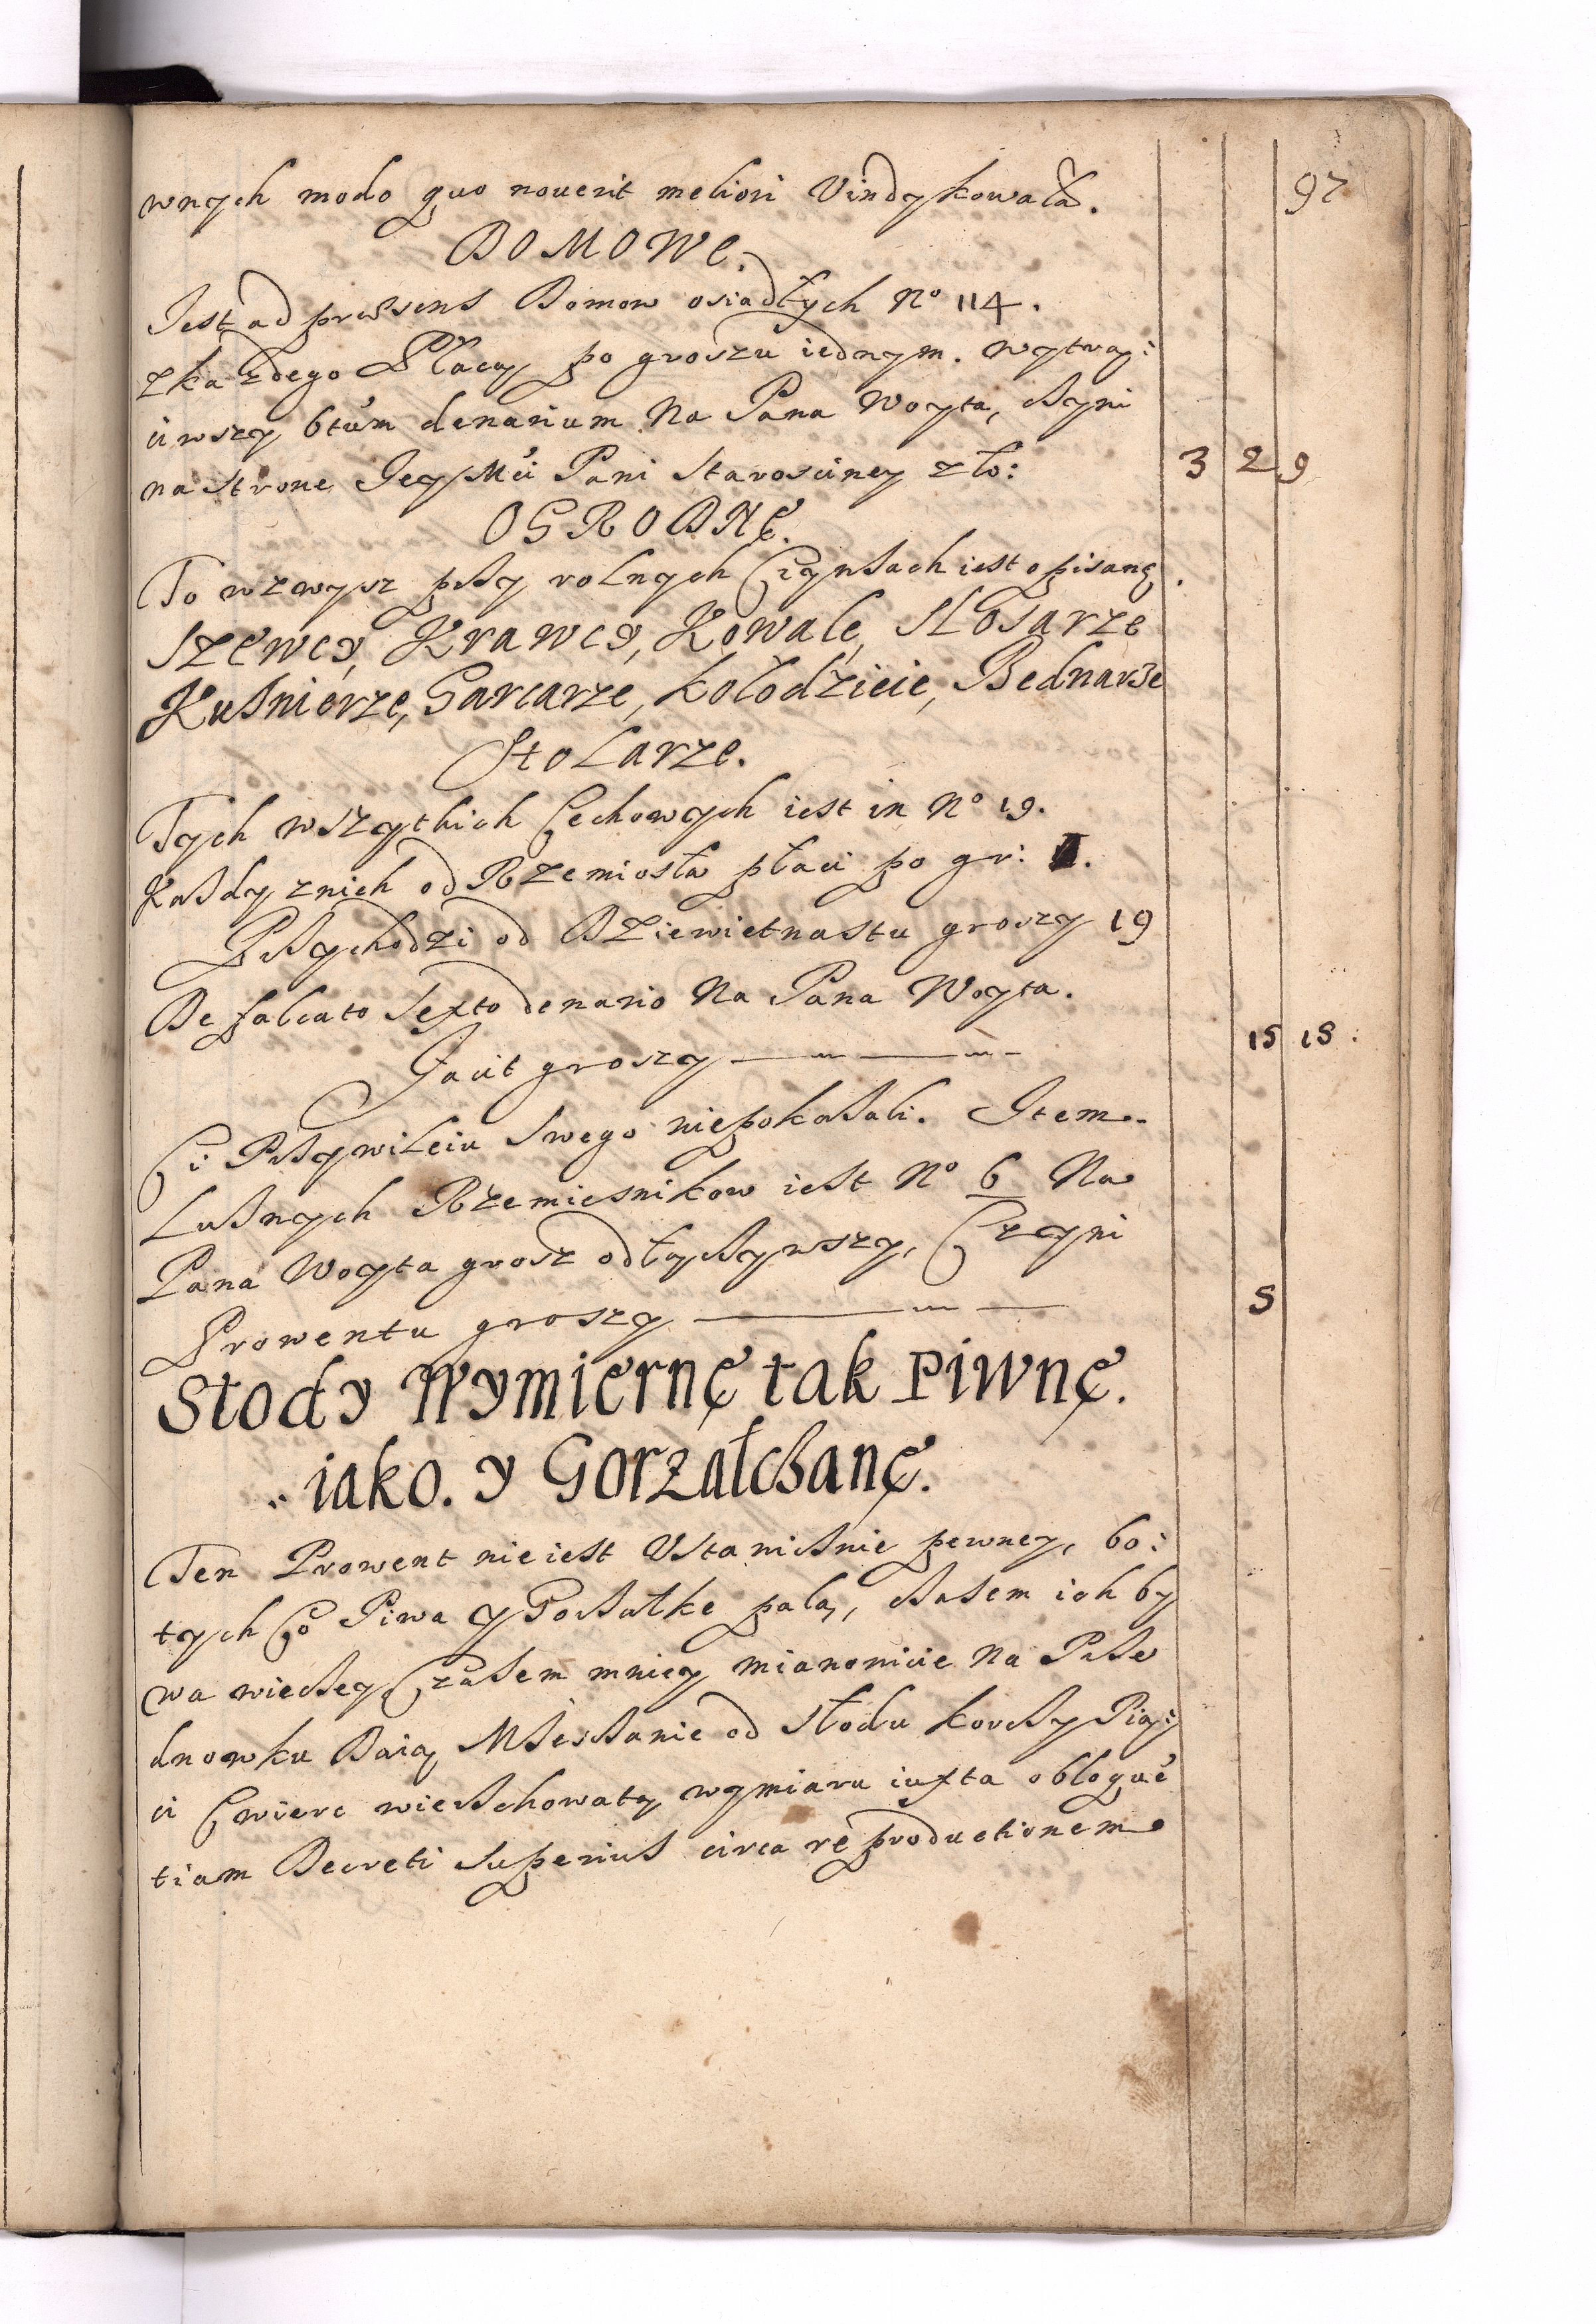 97
wnych modo quo nouerit meliori Vindykowała.
DOMOWE.
Jest ad præsens Domow osiadłych No 114.
zkażdego Płacą po groszu iednym. wytrąi:
ciwszy 6tum denarium Na Pana Woyta, czyni
na strone Jey Mći Pani Starosciney zło: 3 2 9
OGRODNE.
To wzwysz przy rolnych Czynszach iest opisane.
Szewcy, Krawcy, Kowale, Slosarze
Kuśnierze, Garcarze, Kołodzieie, Bednarze
Stolarze.
Tych wszytkich Cechowych iest in No 19.
Kazdy znich od Rzemiosła płaci po gr: 1.
Przychodzi od Dziewietnastu groszy 19
Defalcato Sexto denario Na Pana Woyta.
Facit groszy 15 15.
Ci Przywileiu Swego niepokazali. Item
Luznych Rzemiesnikow iest No 6 Na
Pana Woyta grosz odłozywszy, Czyni
Prowentu groszy 5
Słody Wymierne tak Piwne.
iako. y Gorzałczane.
Ten Prowent nieiest Ustawicznie pewney, bo:
tych Co Piwa y Gorzałke palą, czasem ich by
wa wiecey Czasem mniey mianowicie Na Prze
dnowku Daią Mieszczanie od Słodu korczy Pią:
ci Cwierc wierzchowatą wymiaru iuxta obloque
tiam Decreti Superius circa reproductionem